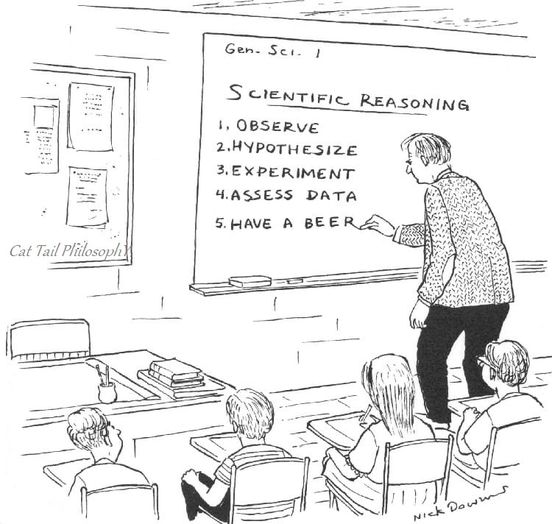 Gen. Sci. 1
SCIENTIFIC REASONING
1. OBSERVE
2. HYPOTHESIZE
3. EXPERIMENT
4. ASSESS DATA
5. HAVE A BEER
Cat Tail PhilosophY
NICK DOWNES